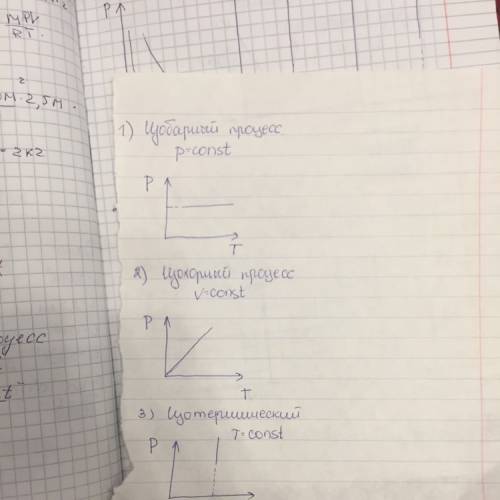 MPV
RT.
P
2
м · 2,5м.
= 2кг
1) Изобарный процесс
p=const
P
T
2) Изохорный процесс
V=const
P
T
3) Изотермический
T=const
P